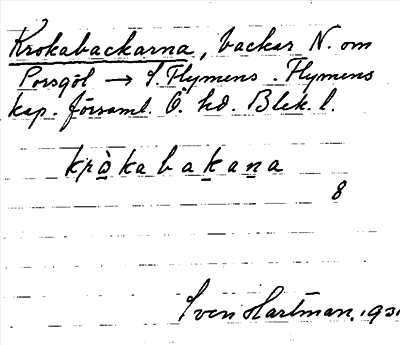 Krokabackarna, backar N. om
Porsgöl → S. Flymens. Flymens
kap. församl. Ö. hd. Blek. l.
krò̠kabak̠an̠a
8
Sven Hartman. 1931